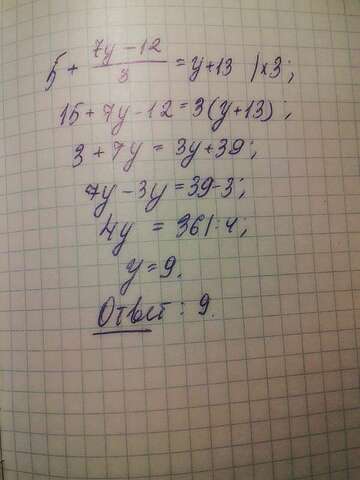 5 + (7y - 12)/3 = y + 13 |x3;
15 + 7y - 12 = 3(y + 13);
3 + 7y = 3y + 39;
7y - 3y = 39 - 3;
4y = 36 |: 4;
y = 9.
Ответ: 9.